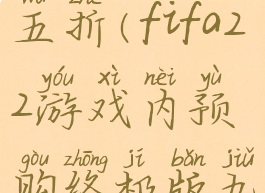 五折(fifa2
yóu xì nèi yù
2游戏内预
gòu zhōng jí bǎn jiǔ
购终极版九